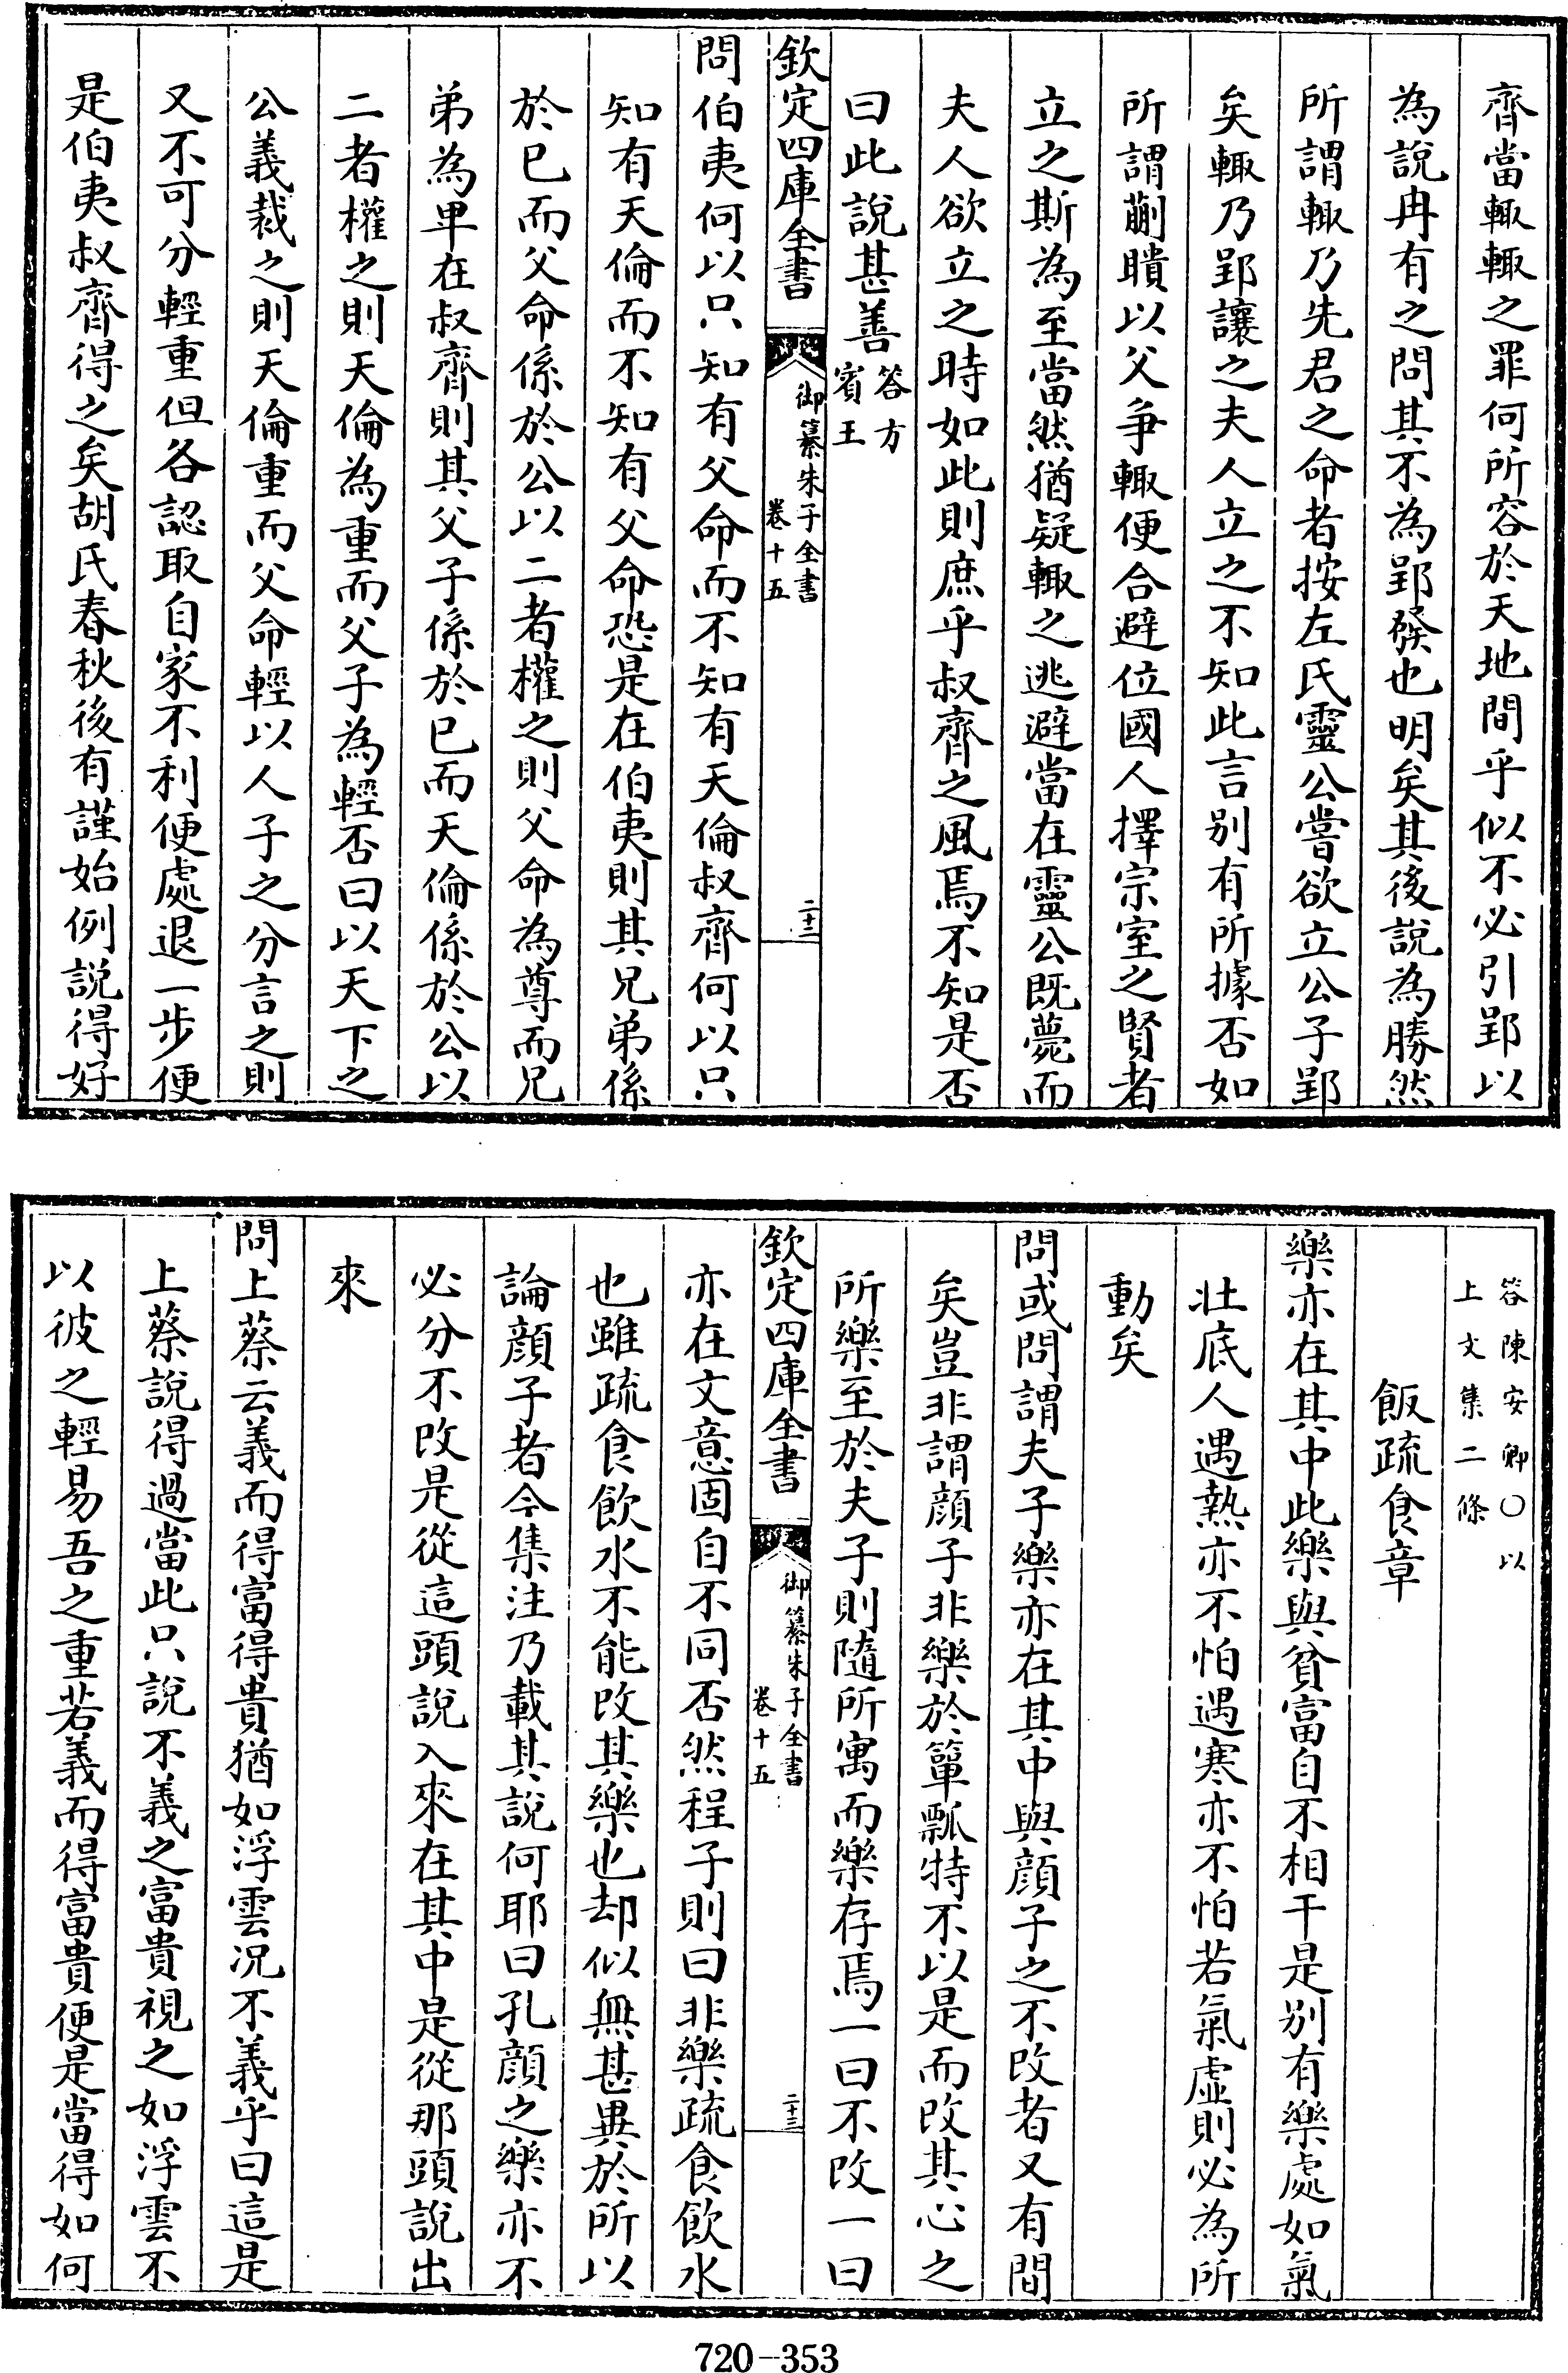 齊當輒輒之罪何所容於天地間乎似不必引郢以
為說冉有之問其不為郢發也明矣其後說為勝然
所謂輒乃先君之命者按左氏靈公嘗欲立公子郢
矣輒乃郢讓之夫人立之不知此言别有所據否如
所謂蒯聵以父爭輒便合避位國人擇宗室之賢者
立之斯為至當然猶疑輒之逃避當在靈公既薨而
夫人欲立之時如此則庶乎叔齊之風焉不知是否
曰此說甚善答方賓王
欽定四庫全書
御纂朱子全書
卷十五
二十三
問伯夷何以只知有父命而不知有天倫叔齊何以只
知有天倫而不知有父命恐是在伯夷則其兄弟係
於己而父命係於公以二者權之則父命為尊而兄
弟為卑在叔齊則其父子係於己而天倫係於公以
二者權之則天倫為重而父子為輕否曰以天下之
公義裁之則天倫重而父命輕以人子之分言之則
又不可分輕重但各認取自家不利便處退一步便
是伯夷叔齊得之矣胡氏春秋後有謹始例說得好
答陳安卿〇以
上文集二條
飯疏食章
樂亦在其中此樂與貧富自不相干是别有樂處如氣
壯底人遇熱亦不怕遇寒亦不怕若氣虛則必為所
動矣
問或問謂夫子樂亦在其中與顔子之不改者又有間
矣豈非謂顔子非樂於簞瓢特不以是而改其心之
所樂至於夫子則隨所寓而樂存焉一曰不改一曰
欽定四庫全書
御纂朱子全書
卷十五
二十三
亦在文意固自不同否然程子則曰非樂疏食飲水
也雖疏食飲水不能改其樂也却似無甚異於所以
論顔子者今集注乃載其說何耶曰孔顔之樂亦不
必分不改是從這頭說入來在其中是從那頭說出
來
問上蔡云義而得富得貴猶如浮雲况不義乎曰這是
上蔡說得過當此只說不義之富貴視之如浮雲不
以彼之輕易吾之重若義而得富貴便是當得如何
720-353